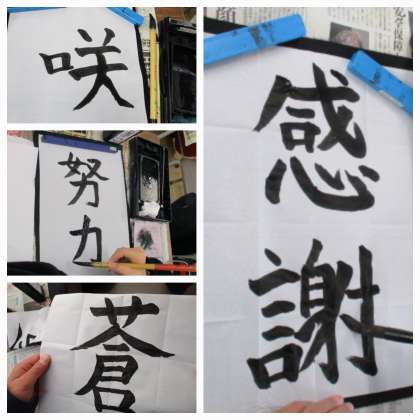 咲
努
力
蒼
感
謝